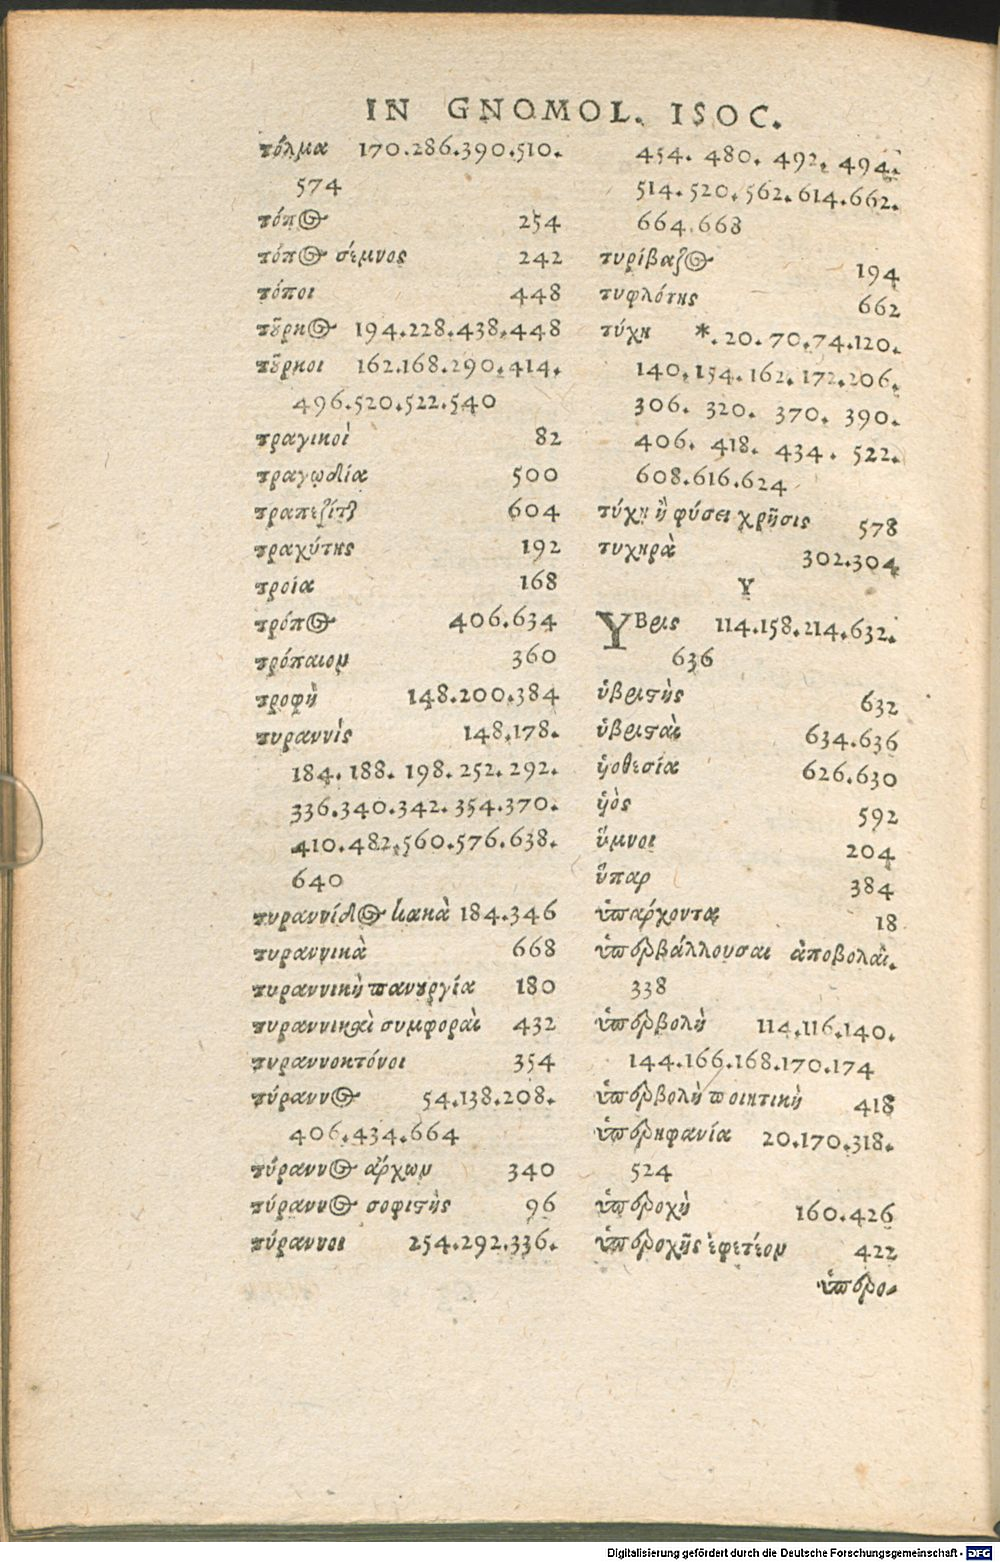 IN GNOMOL. ISOC.
τόλμα 170.286.390.510.
574
τόπος 254
τόπος σέμνος 242
τόποι 448
τοῦρκος 194.228.438.448
τοῦρκοι 162.168.290.414.
496.520.522.540
τραγικοὶ 82
τραγῳδία 500
τραπεζίται 604
τραχύτης 192
τροία 168
τρόπος 406.634
τρόπαιον 360
τροφὴ 148.200.384
τυραννὶς 148.178.
184. 188. 198. 252. 292.
336.340.342. 354.370.
410.482.560.576.638.
640
τυραννίδος κακὰ 184.346
τυραννικὰ 668
τυραννικὴ πανουργία 180
τυραννικαὶ συμφοραὶ 432
τυραννοκτόνοι 354
τύραννος 54.138.208.
406.434.664
τύραννος ἄρχων 340
τύραννος σοφιστὴς 96
τύραννοι 254.292.336.
454. 480. 492. 494.
514. 520. 562. 614. 662.
664.668
τυρίβαζος 194
τυφλότης 662
τύχη *. 20. 70.74.120.
140. 154. 162. 172. 206.
306. 320. 370. 390.
406. 418. 434. 522.
608.616.624
τύχη ἢ φύσει χρῆσις 578
τυχηρὰ 302.304
Υ
ΥΒρις 114.158.214.632.
636
ὑβριστὴς 632
ὑβρισταὶ 634.636
ὑοθεσία 626.630
ὑὸς 592
ὕμνοι 204
ὕπαρ 384
ὑπάρχοντα 18
ὑπερβάλλουσαι ἀποβολαὶ.
338
ὑπερβολὴ 114.116.140.
144.166.168.170.174
ὑπερβολὴ ποιητικὴ 418
ὑπερηφανία 20.170.318.
524
ὑπεροχὴ 160.426
ὑπεροχῆς ἐφετέον 422
ὑπερο-
Digitalisierung gefördert durch die Deutsche Forschungsgemeinschaft - DFG